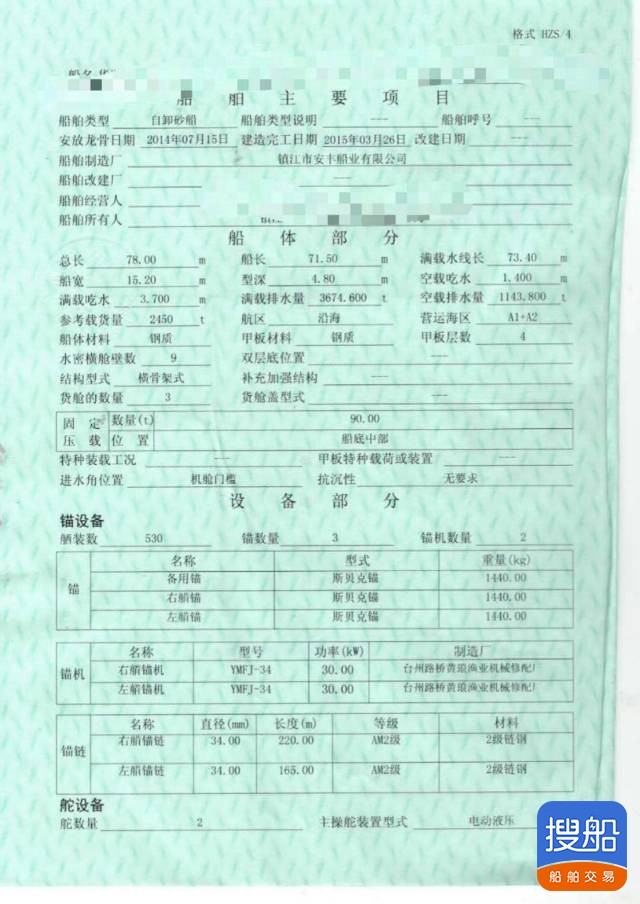 格式 HZS/4
船舶主要项目
船舶类型 自卸砂船 船舶类型说明 --- 船舶呼号 ---
安放龙骨日期 2014年07月15日 建造完工日期 2015年03月26日 改建日期 ---
船舶制造厂 镇江市安丰船业有限公司
船舶改建厂 ---
船舶经营人
船舶所有人
船体部分
总长 78.00 m 船长 71.50 m 满载水线长 73.40 m
船宽 15.20 m 型深 4.80 m 空载吃水 1.400 m
满载吃水 3.700 m 满载排水量 3674.600 t 空载排水量 1143.800 t
参考载货量 2450 t 航区 沿海 营运海区 A1+A2
船体材料 钢质 甲板材料 钢质 甲板层数 4
水密横舱壁数 9 双层底位置 ---
结构型式 横骨架式 补充加强结构 ---
货舱的数量 3 货舱盖型式 ---
固定压载 数量(t) 90.00
位置 船底中部
特种装载工况 --- 甲板特种载荷或装置 ---
进水角位置 机舱门槛 抗沉性 无要求
设备部分
锚设备
舾装数 530 锚数量 3 锚机数量 2
锚 名称 型式 重量(kg)
备用锚 斯贝克锚 1440.00
右艏锚 斯贝克锚 1440.00
左艏锚 斯贝克锚 1440.00
锚机 名称 型号 功率(kW) 制造厂
右艏锚机 YMFJ-34 30.00 台州路桥黄琅渔业机械修配厂
左艏锚机 YMFJ-34 30.00 台州路桥黄琅渔业机械修配厂
锚链 名称 直径(mm) 长度(m) 等级 材料
右艏锚链 34.00 220.00 AM2级 2级链钢
左艏锚链 34.00 165.00 AM2级 2级链钢
舵设备
舵数量 2 主操舵装置型式 电动液压
搜船
船舶交易